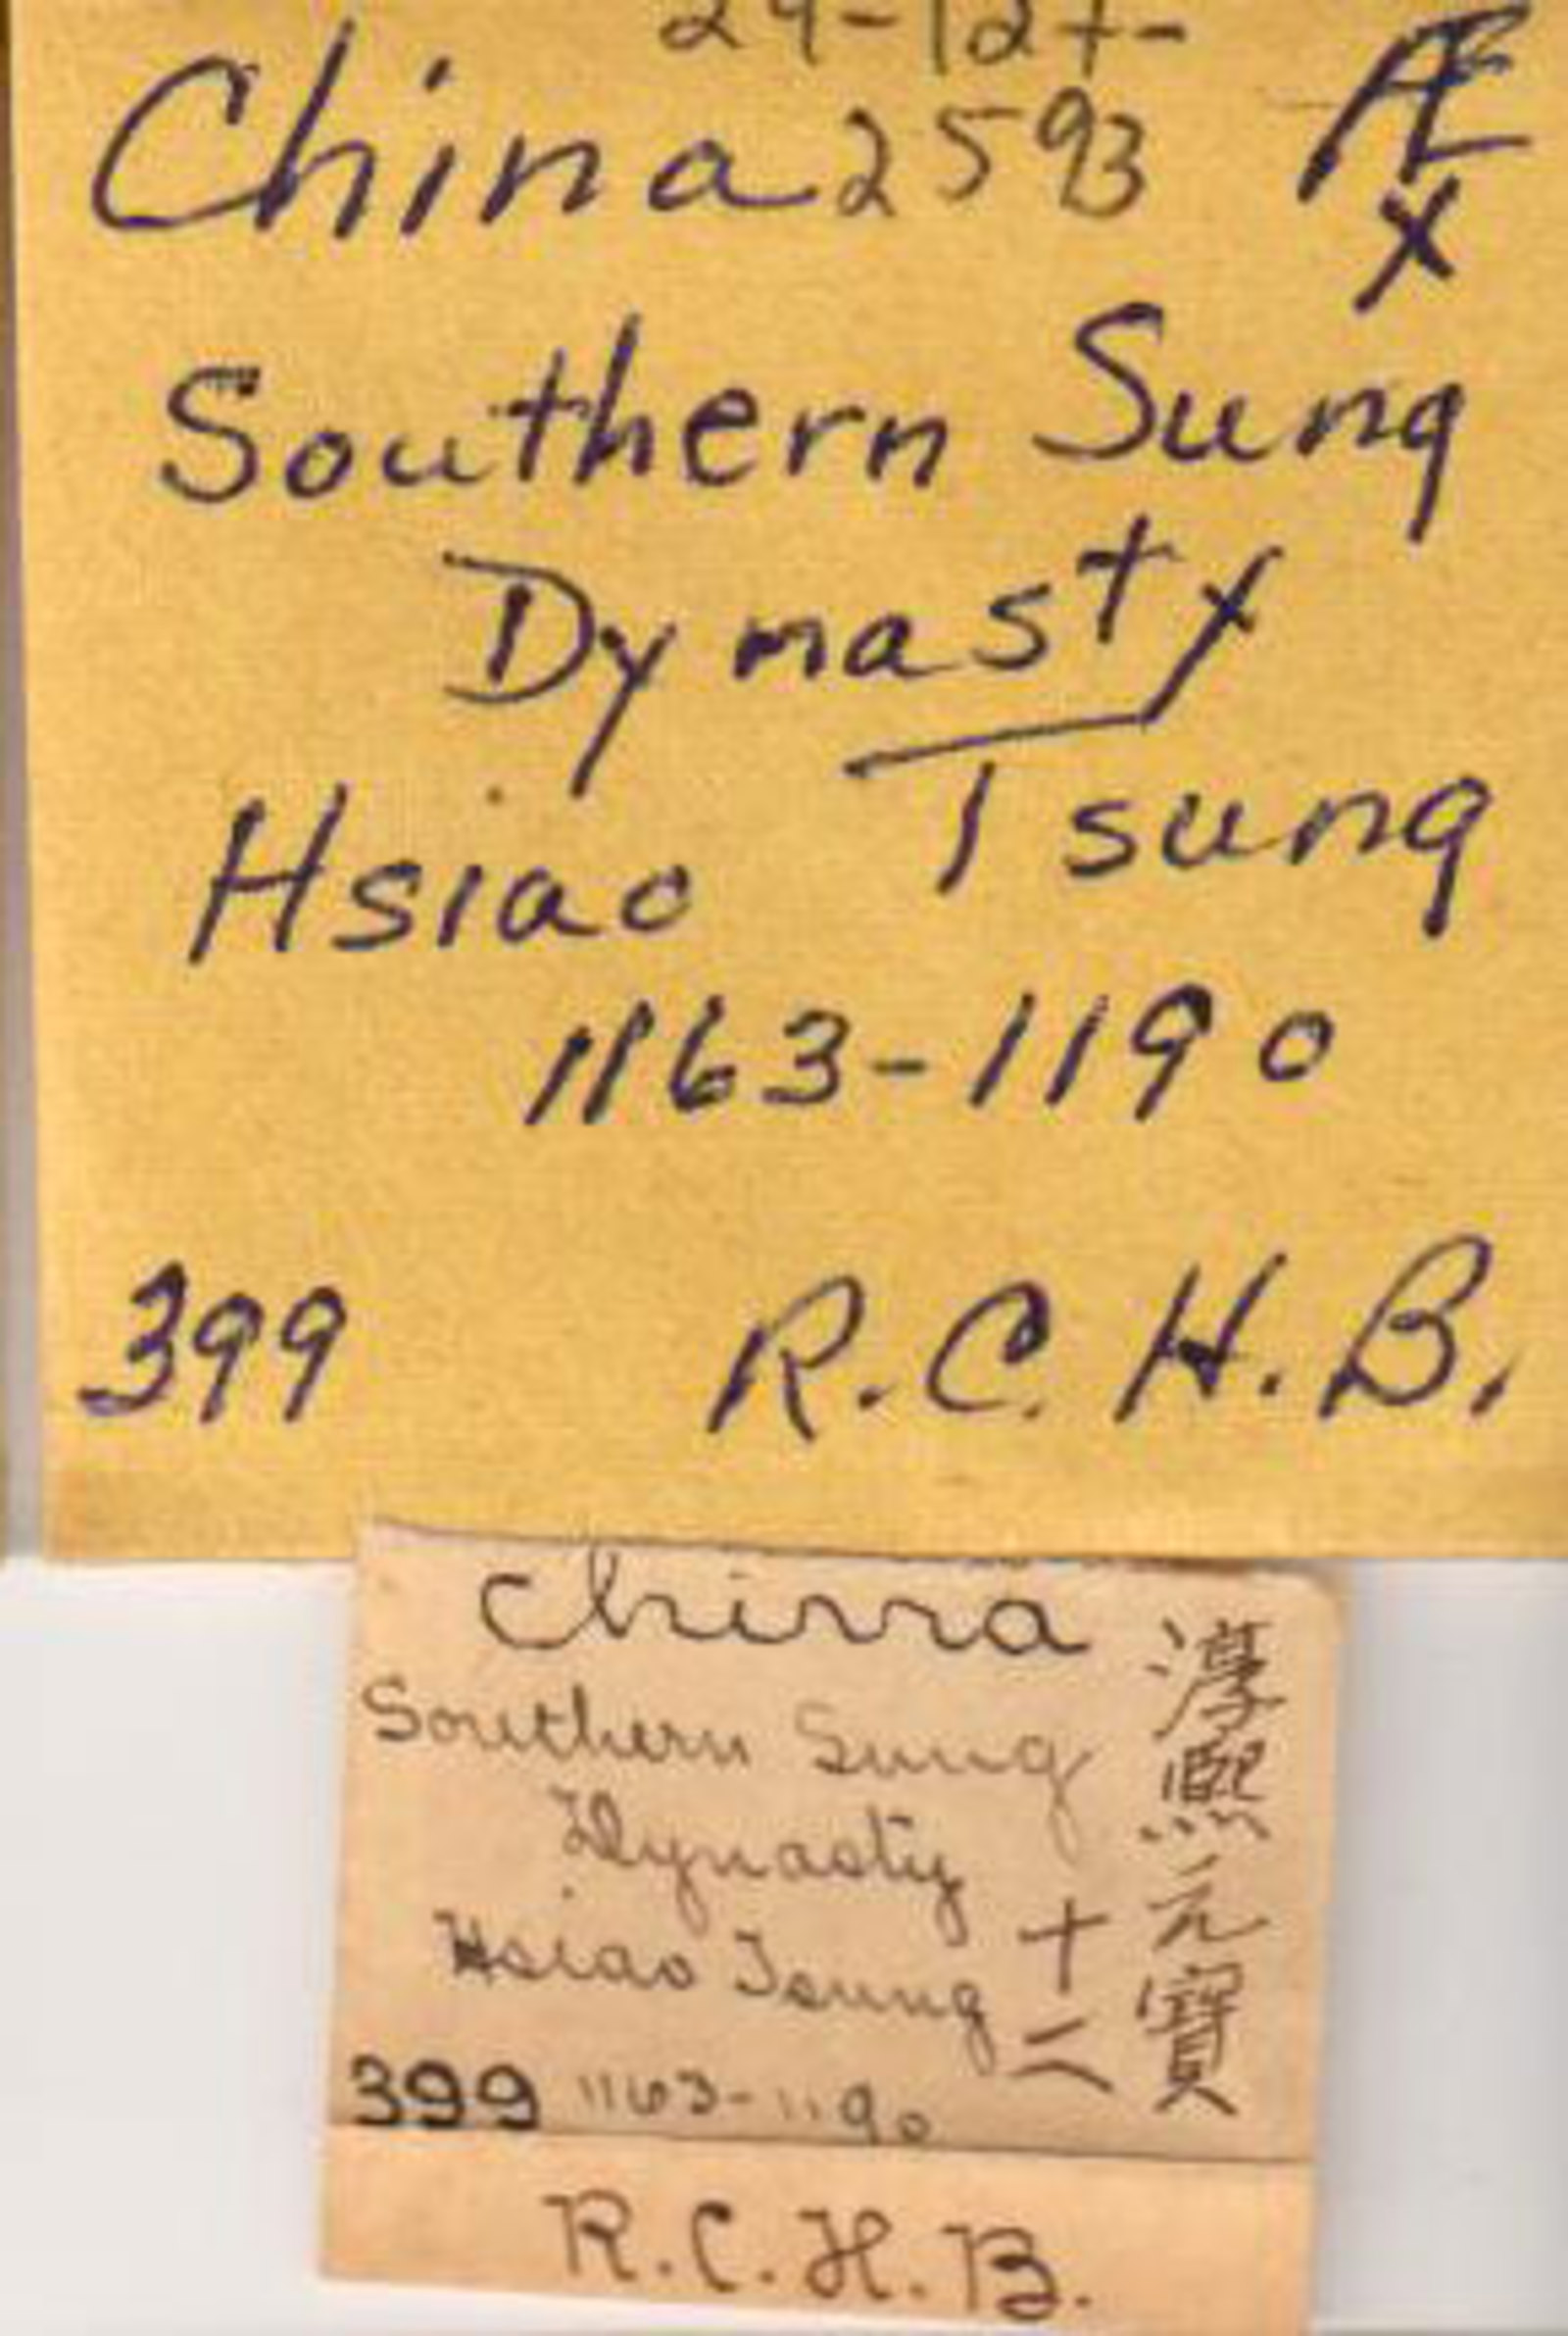 China 2593 Æ
x
Southern Sung
Dynasty
Hsiao Tsung
1163-1190
399 R.C.H.B.
China
Southern Sung
Dynasty
Hsiao Tsung
399 1163-1190
淳熙元寶
十二
R.C.H.B.